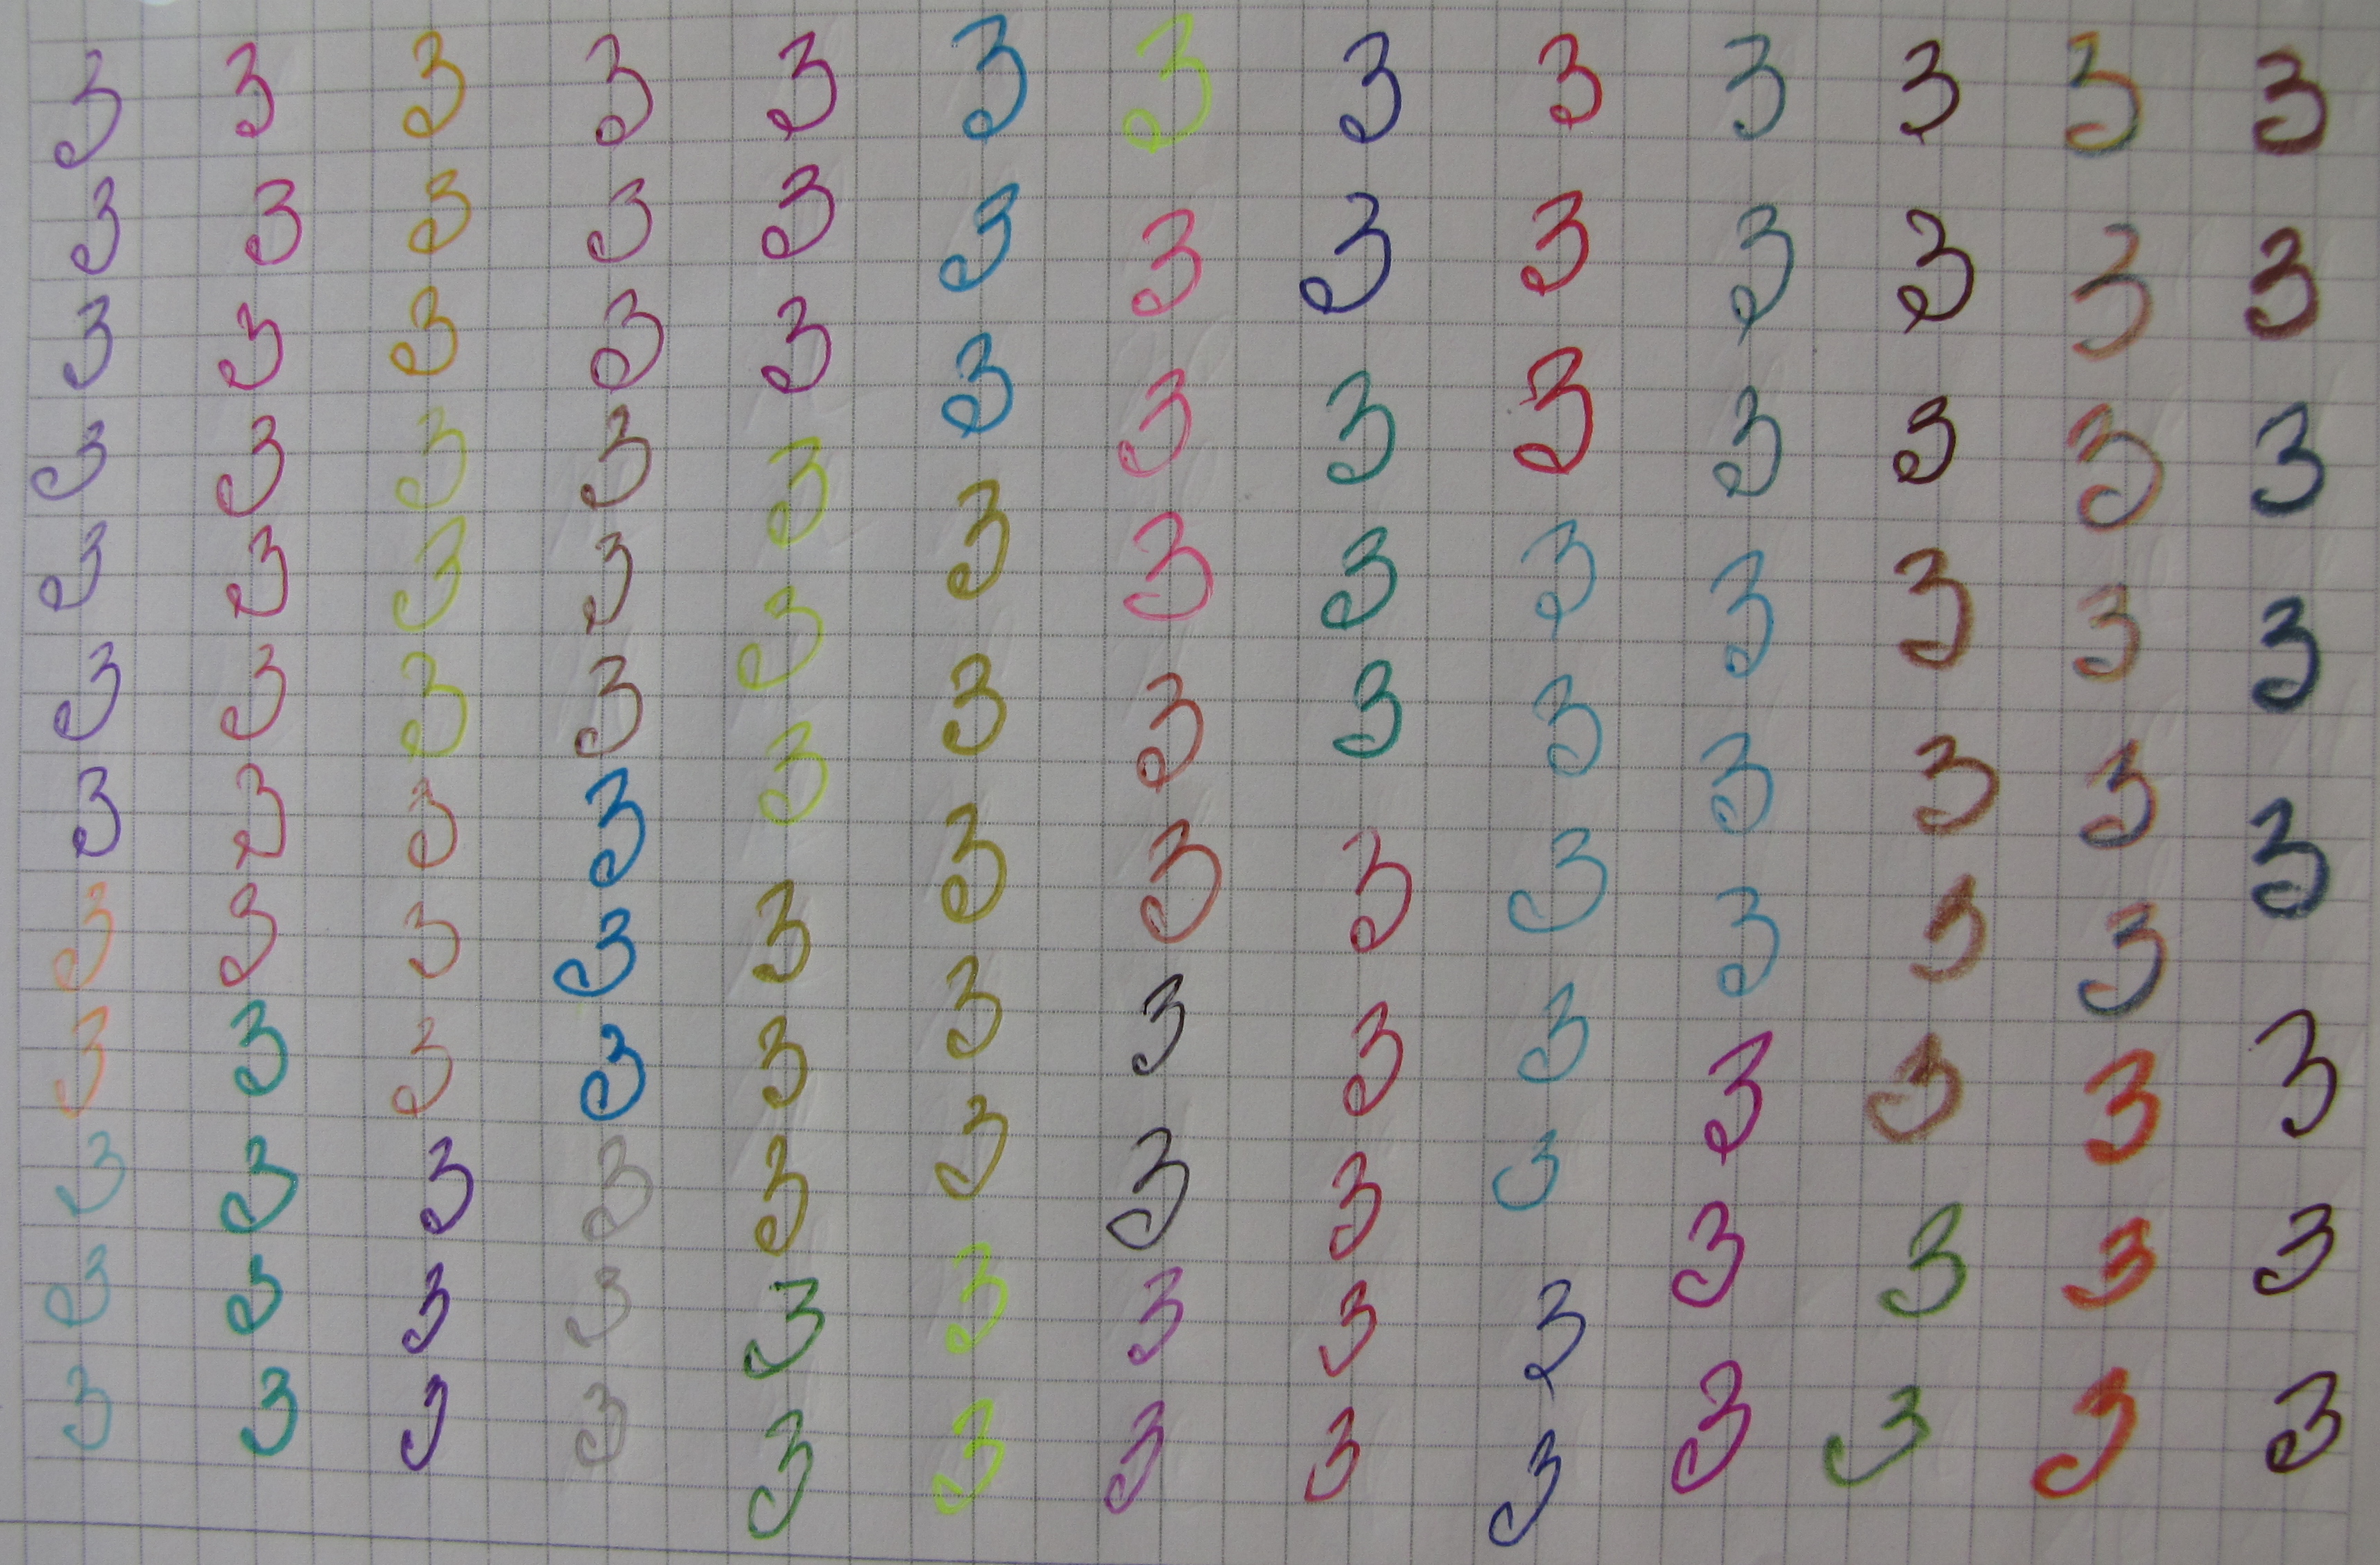 3 3 3 3 3 3 3 3 3 3 3 3 3
3 3 3 3 3 3 3 3 3 3 3 3 3
3 3 3 3 3 3 3 3 3 3 3 3 3
3 3 3 3 3 3 3 3 3 3 3 3 3
3 3 3 3 3 3 3 3 3 3 3 3 3
3 3 3 3 3 3 3 3 3 3 3 3 3
3 3 3 3 3 3 3 3 3 3 3 3 3
3 3 3 3 3 3 3 3 3 3 3 3 3
3 3 3 3 3 3 3 3 3 3 3 3
3 3 3 3 3 3 3 3 3
3 3 3 3 3
3 3 3 3